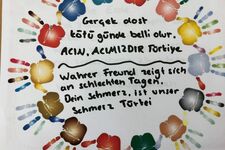 Gerçek dost
kötü günde belli olur.
ACIN, ACIMIZDIR Türkiye
Wahrer Freund zeigt sich
an schlechten Tagen.
Dein Schmerz, ist unser
Schmerz Türkei